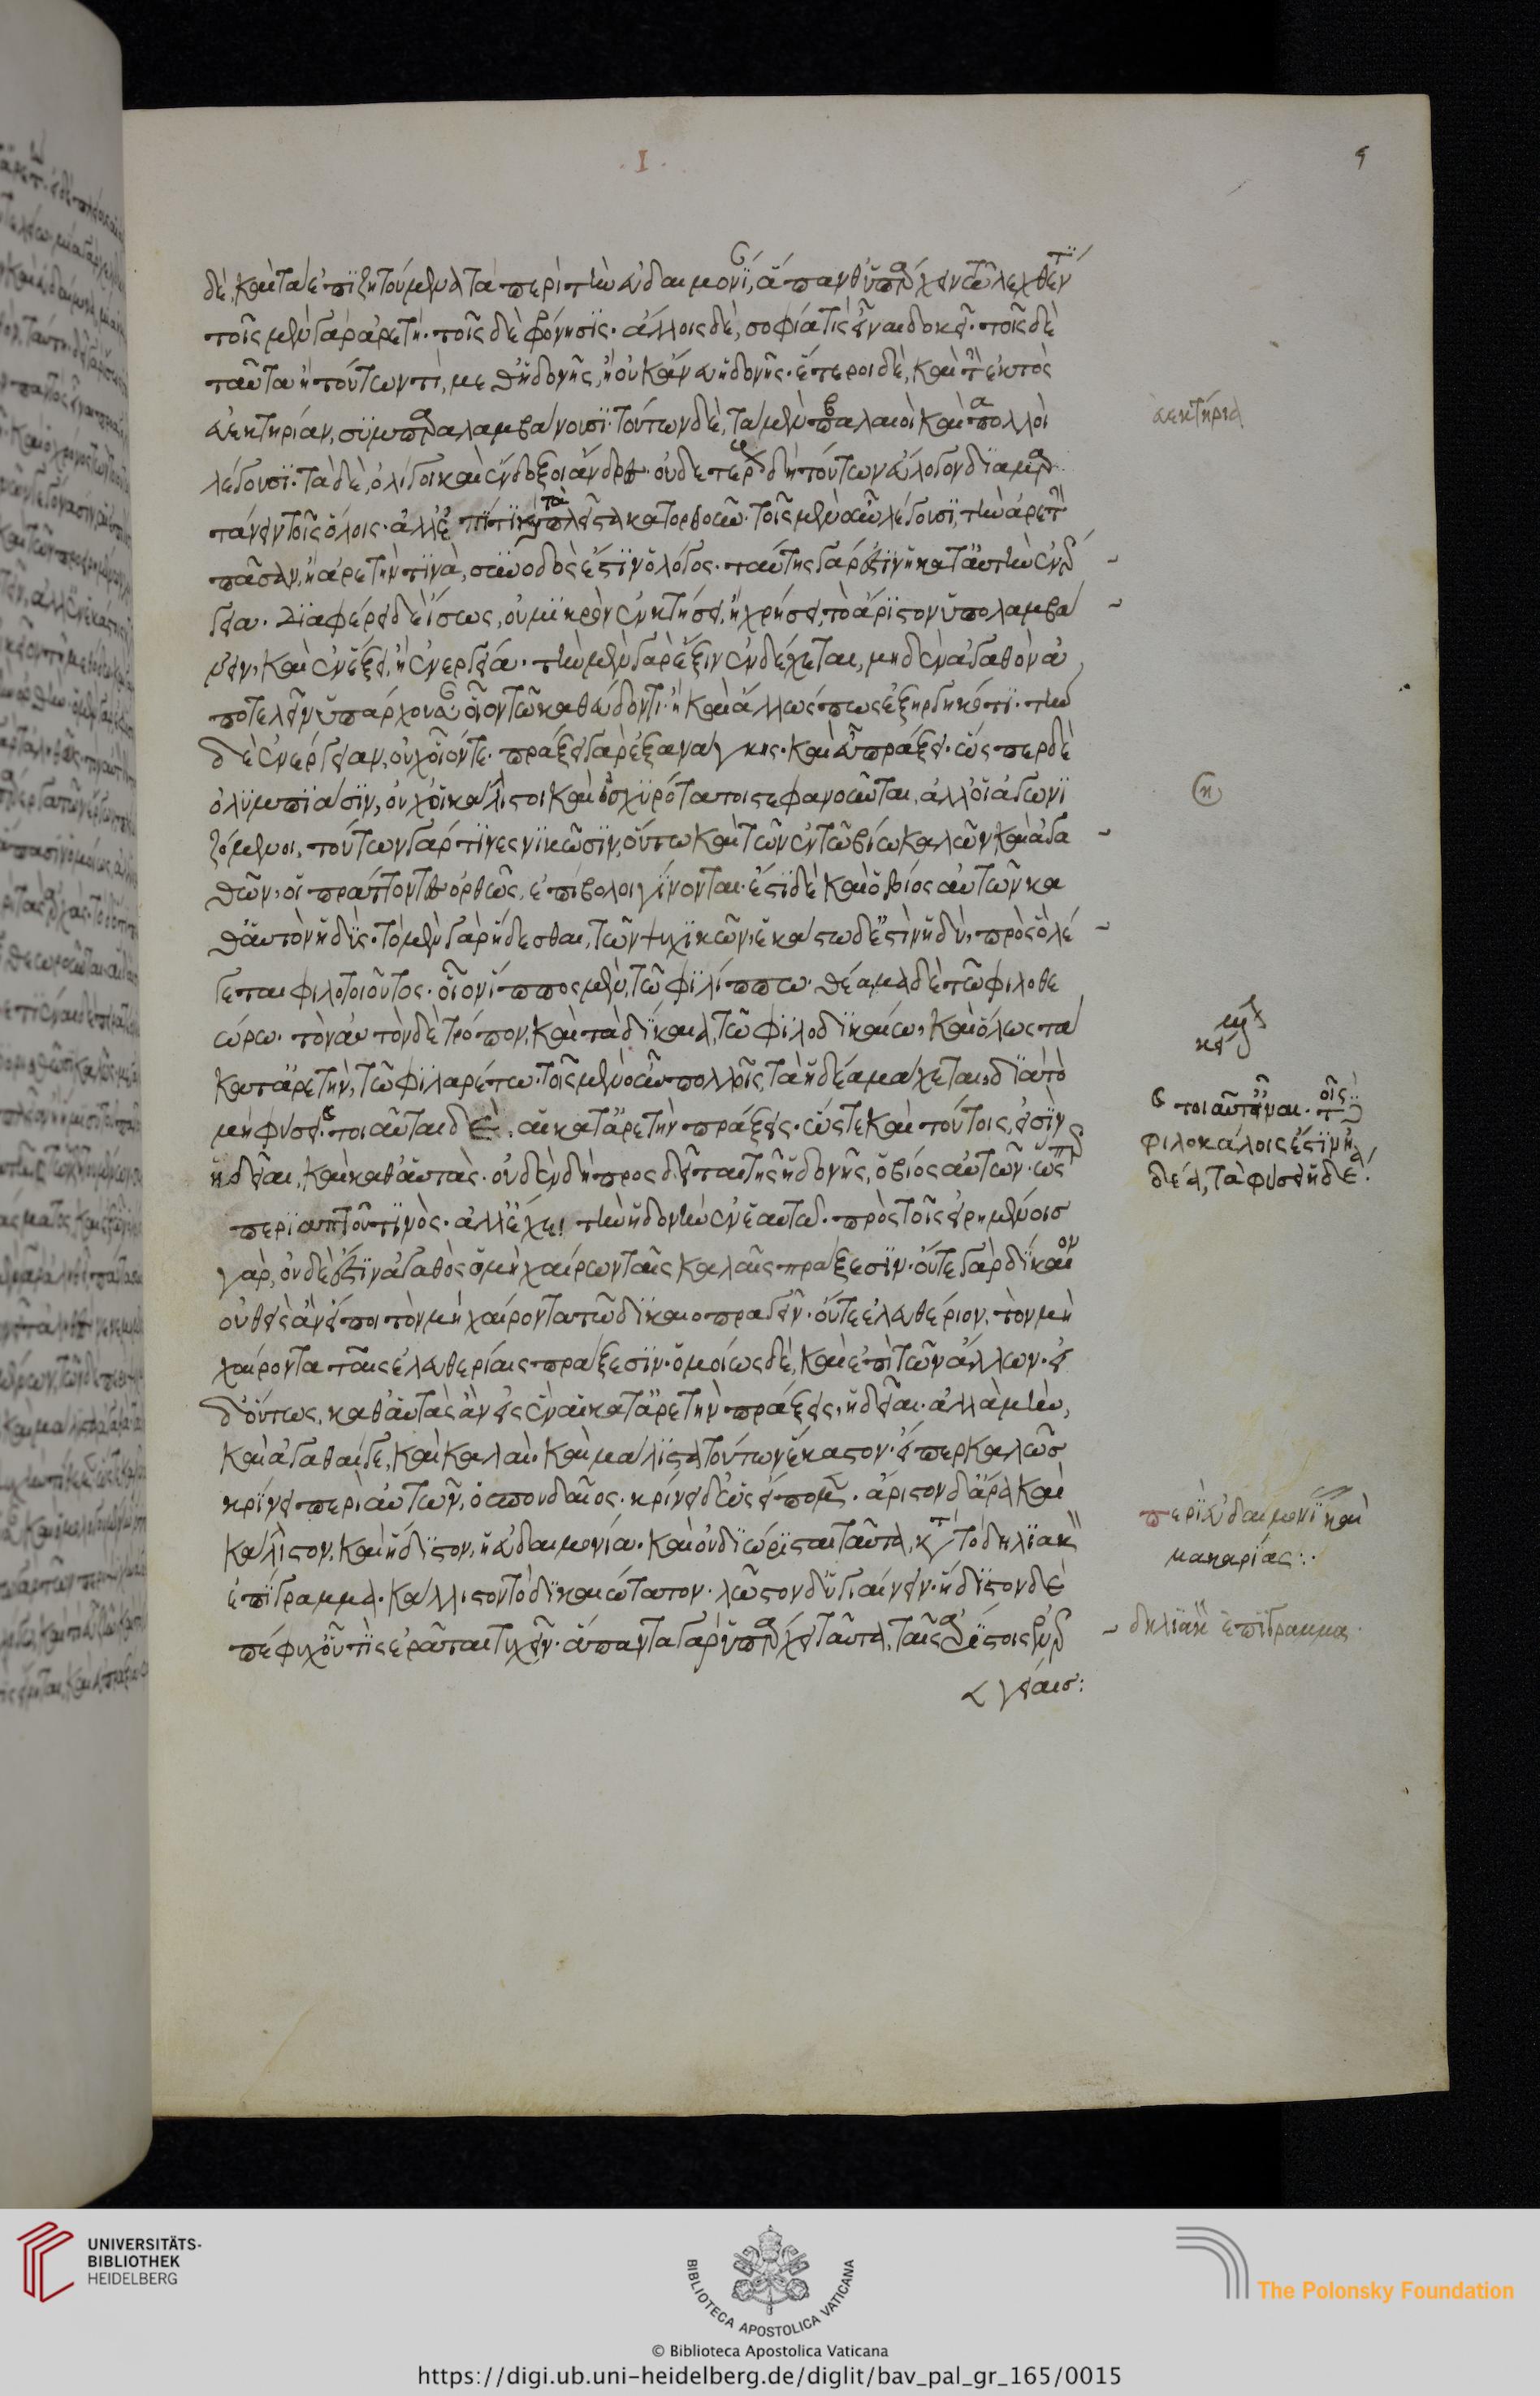 .Ι.
δὲ, καὶ τὰ ἐπιζητούμενα τὰ περὶ τὴν εὐδαιμονίαν, ἅπανθ' ὑπάρχειν τῶ λεχθέντι
τοῖς μὲν γὰρ ἀρετή· τοῖς δὲ φρόνησις· ἄλλοις δὲ, σοφία τὶς εἶναι δοκεῖ· τοῖς δὲ
ταῦτα ἢ τούτων τὶ, μεθ' ἡδονῆς, ἢ οὐκ ἄνευ ἡδονῆς· ἕτεροι δὲ, καὶ τὴν ἐκτὸς
εὐεκτηρίαν, συμπαραλαμβάνουσι· τούτων δὲ, τὰ μὲν παλαιοὶ καὶ πολλοὶ
λέγουσι· τὰ δὲ, ὀλίγοι καὶ ἔνδοξοι ἄνδρες· οὐδετέρους δὴ τούτων εὔλογον διαμαρ
τάνειν τοῖς ὅλοις· ἀλλ' ἕν τι ἢ καὶ τὰ πλεῖστα κατορθοῦν· τοῖς μὲν οὖν λέγουσι, τὴν ἀρετὴν
πᾶσαν, ἢ ἀρετήν τινὰ, συνωδός ἐστιν ὁ λόγος· ταύτης γάρ ἐστιν ἡ κατ' αὐτὴν ἐνέρ
γεια· διαφέρει δὲ ἴσως, οὐ μικρὸν ἐν κτήσει, ἢ χρήσει, τὸ ἄριστον ὑπολαμβά
νειν, καὶ ἐν ἕξει, ἢ ἐνεργεία· τὴν μὲν γὰρ ἕξιν ἐνδέχεται, μηδὲν ἀγαθὸν ἀ
ποτελεῖν ὑπάρχουσαν οἷον τῶ καθεύδοντι· ἢ καὶ ἄλλως πως ἐξηργηκότι· τὴν
δὲ ἐνέργειαν, οὐχ οἷόντε· πράξει γὰρ ἐξανάγκης· καὶ εὖ πράξει· ὥσπερ δὲ
ὀλυμπιάσιν, οὐχ οἱ κάλλιστοι καὶ ἰσχυρότατοι στεφανοῦνται, ἀλλ' οἱ ἀγωνι
ζόμενοι, τούτων γάρ τινες νικῶσιν, οὕτω καὶ τῶν ἐν τῶ βίω καλῶν καὶ ἀγα
θῶν, οἱ πράττοντες ὀρθῶς, ἐπίβολοι γίνονται· ἔστι δὲ καὶ ὁ βίος αὐτῶν κα
θ' αὑτὸν ἡδύς· τὸ μὲν γὰρ ἥδεσθαι, τῶν ψυχικῶν, ἑκάστω δ' ἐστὶν ἡδὺ, πρὸς ὃ λέ
γεται φιλοτοιοῦτος· οἷον ἵππος μὲν, τῶ φιλίππω· θέαμα δὲ τῶ φιλοθε
ώρω· τὸν αὐτὸν δὲ τρόπον, καὶ τὰ δίκαια, τῶ φιλοδικαίω, καὶ ὅλως τὰ
κατ' ἀρετὴν, τῶ φιλαρέτω· τοῖς μὲν οὖν πολλοῖς, τὰ ἡδέα μάχεται, διὰ τὸ
μὴ φύσει τοιαῦται δὲ, αἱ κατ' ἀρετὴν πράξεις· ὥστε καὶ τούτοις, εἰσὶν
ἡδεῖαι, καὶ καθ' αὑτὰς· οὐδὲν δὴ προσδεῖται τῆς ἡδονῆς, ὁ βίος αὐτῶν· ὥσπερ
περιάπτου τινὸς· ἀλλ' ἔχει τὴν ἡδονὴν ἐν ἑαυτῶ· πρὸς τοῖς εἰρημένοισ
γὰρ, οὐδέ ἐστιν ἀγαθὸς ὁ μὴ χαίρων ταῖς καλαῖς πράξεσιν· οὔτε γὰρ δίκαιον
οὐθεὶς ἂν εἴποι τὸν μὴ χαίροντα τῶ δικαιοπραγεῖν· οὔτε ἐλευθέριον, τὸν μὴ
χαίροντα ταῖς ἐλευθερίαις πράξεσιν· ὁμοίως δὲ, καὶ ἐπὶ τῶν ἄλλων· εἰ
δ' οὕτως, καθ' αὑτὰς ἂν εἶεν αἱ κατ' ἀρετὴν πράξεις, ἡδεῖαι· ἀλλὰ μὴν,
καὶ ἀγαθαί γε, καὶ καλαὶ· καὶ μάλιστα τούτων ἕκαστον· εἴπερ καλῶσ
κρίνει περὶ αὐτῶν, ὁ σπουδαῖος· κρίνει δ' ὡς εἴπομεν· ἄριστον δ' ἄρα καὶ
κάλλιστον, καὶ ἥδιστον, ἡ εὐδαιμονία· καὶ οὐ διώρισται ταῦτα, κατὰ τὸ δηλιακὸν
ἐπίγραμμα· κάλλιστον τὸ δικαιότατον· λῶστον δ' ὑγιαίνειν· ἥδιστον δὲ
πέφυχ' οὗ τις ἐρᾶται τυχεῖν· ἅπαντα γὰρ ὑπάρχει ταῦτα, ταῖς ἀρίσταις ἐνερ
γείαισ:
εὐεκτηρία
τοιαῦτ' εἶναι· τοῖς δὲ
φιλοκάλοις ἐστὶν ἡ
δέα, τὰ φύσει ἡδέα.
περὶ εὐδαιμονίας καὶ
μακαρίας:·
δηλιακὸν ἐπίγραμμα·
UNIVERSITÄTS-
BIBLIOTHEK
HEIDELBERG
BIBLIOTECA APOSTOLICA VATICANA
The Polonsky Foundation
© Biblioteca Apostolica Vaticana
https://digi.ub.uni-heidelberg.de/diglit/bav_pal_gr_165/0015